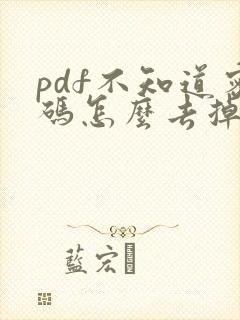 pdf不知道密
碼怎麼去掉
藍宏